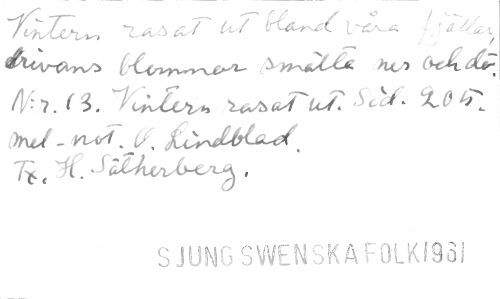 Vintern rasat ut bland våra fjällar,
drivans blommor smälta ner och dö.
N:r. 13. Vintern rasat ut. Sid. 205.
mel-not. O. Lindblad.
Tx. H. Sätherberg.
SJUNG SWENSKA FOLK 1961